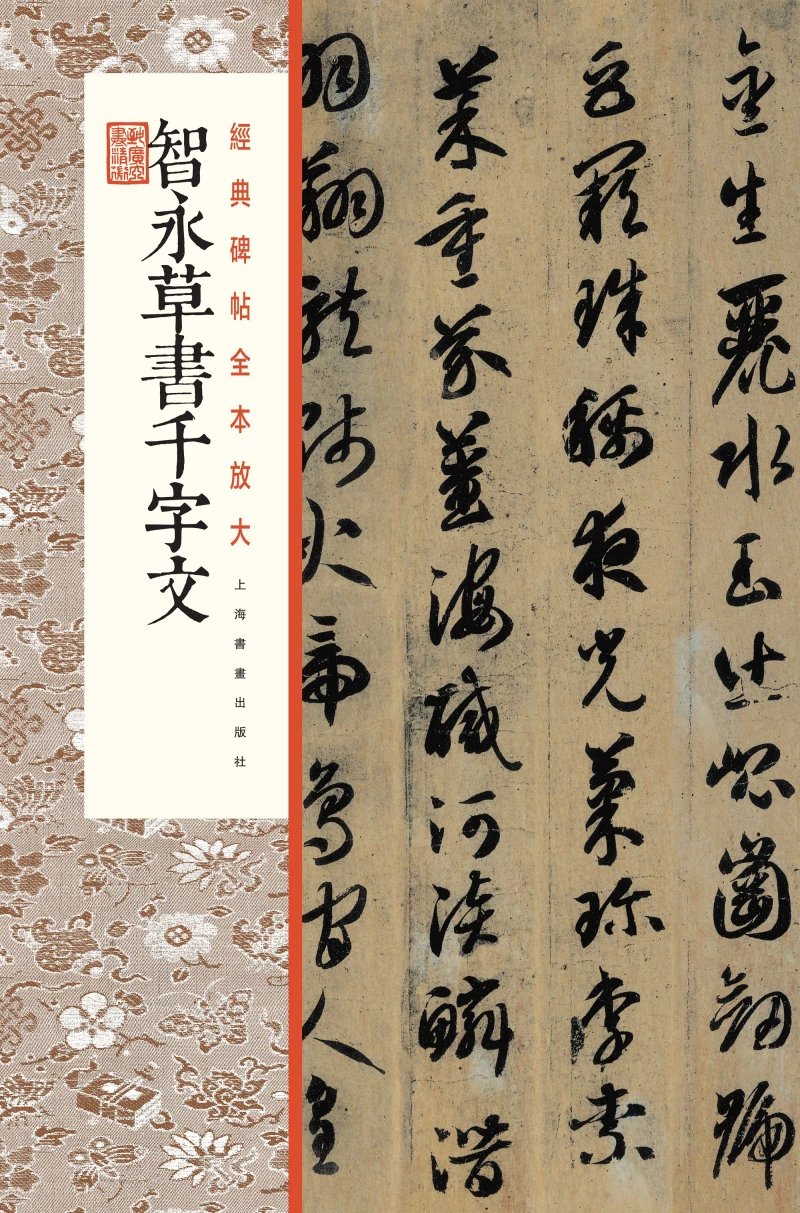 金生麗水玉出崐崗劍號
巨闕珠稱夜光菓珍李柰
菜重芥薑海鹹河淡鱗潛
羽翔龍師火帝鳥官人皇
經典碑帖全本放大
上海書畫出版社
智永草書千字文